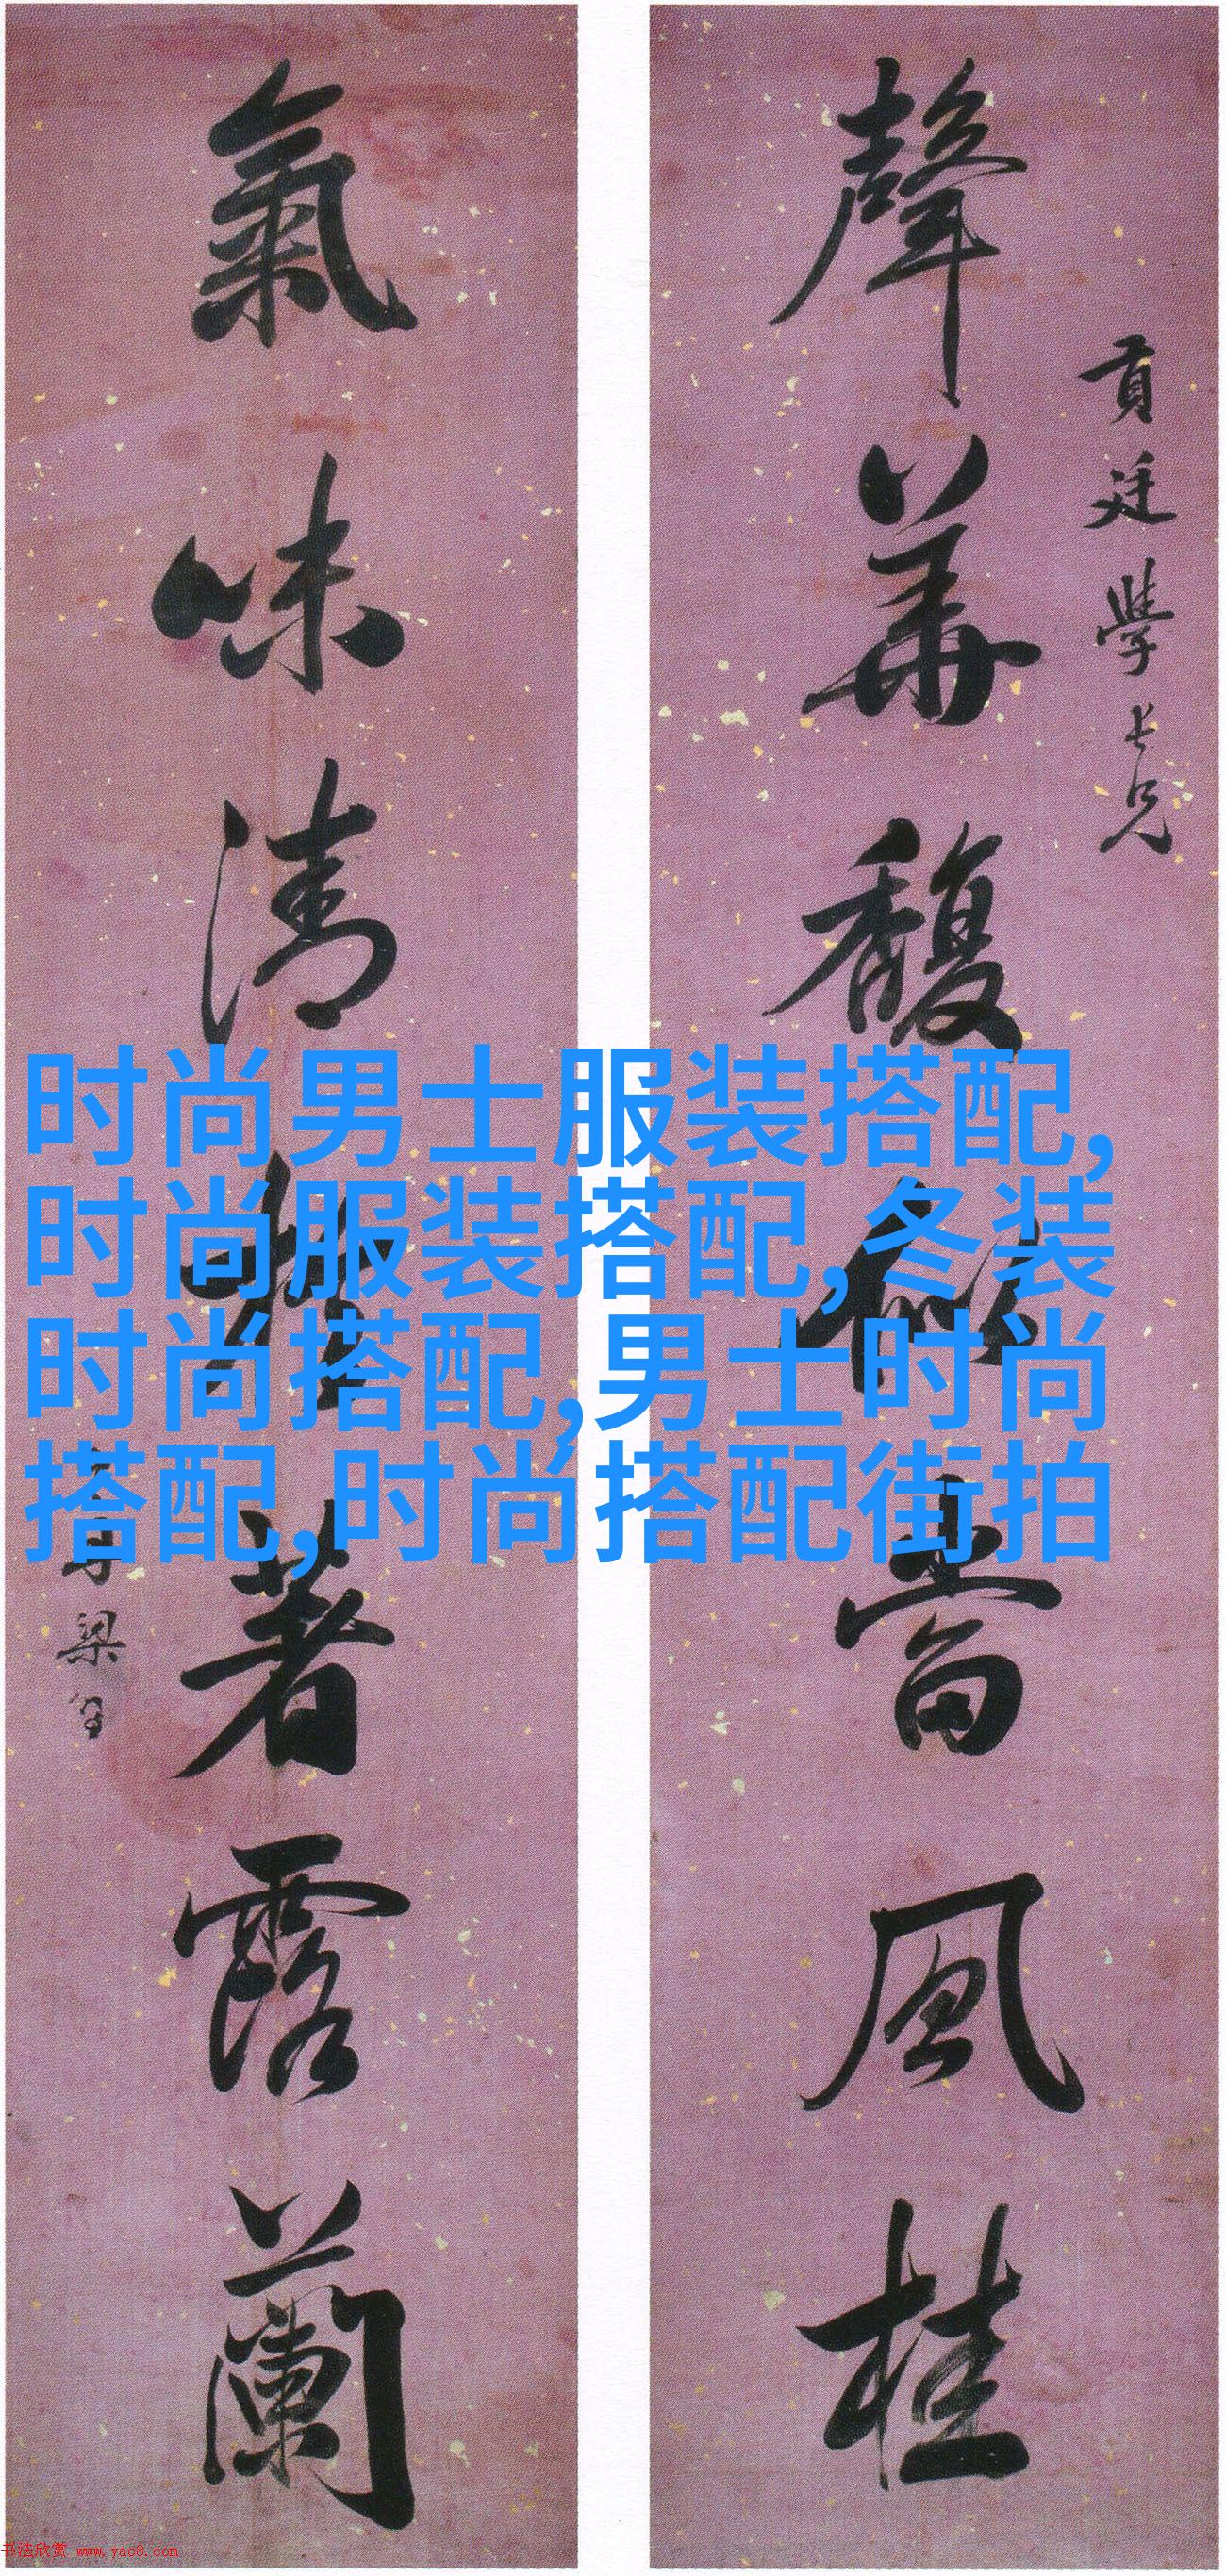 貢廷學長兄
聲華馥當風桂
氣味清著露蘭
梁
时尚男士服装搭配,
时尚服装搭配,冬装
时尚搭配,男士时尚
搭配,时尚搭配街拍
书法欣赏 www.yac8.com